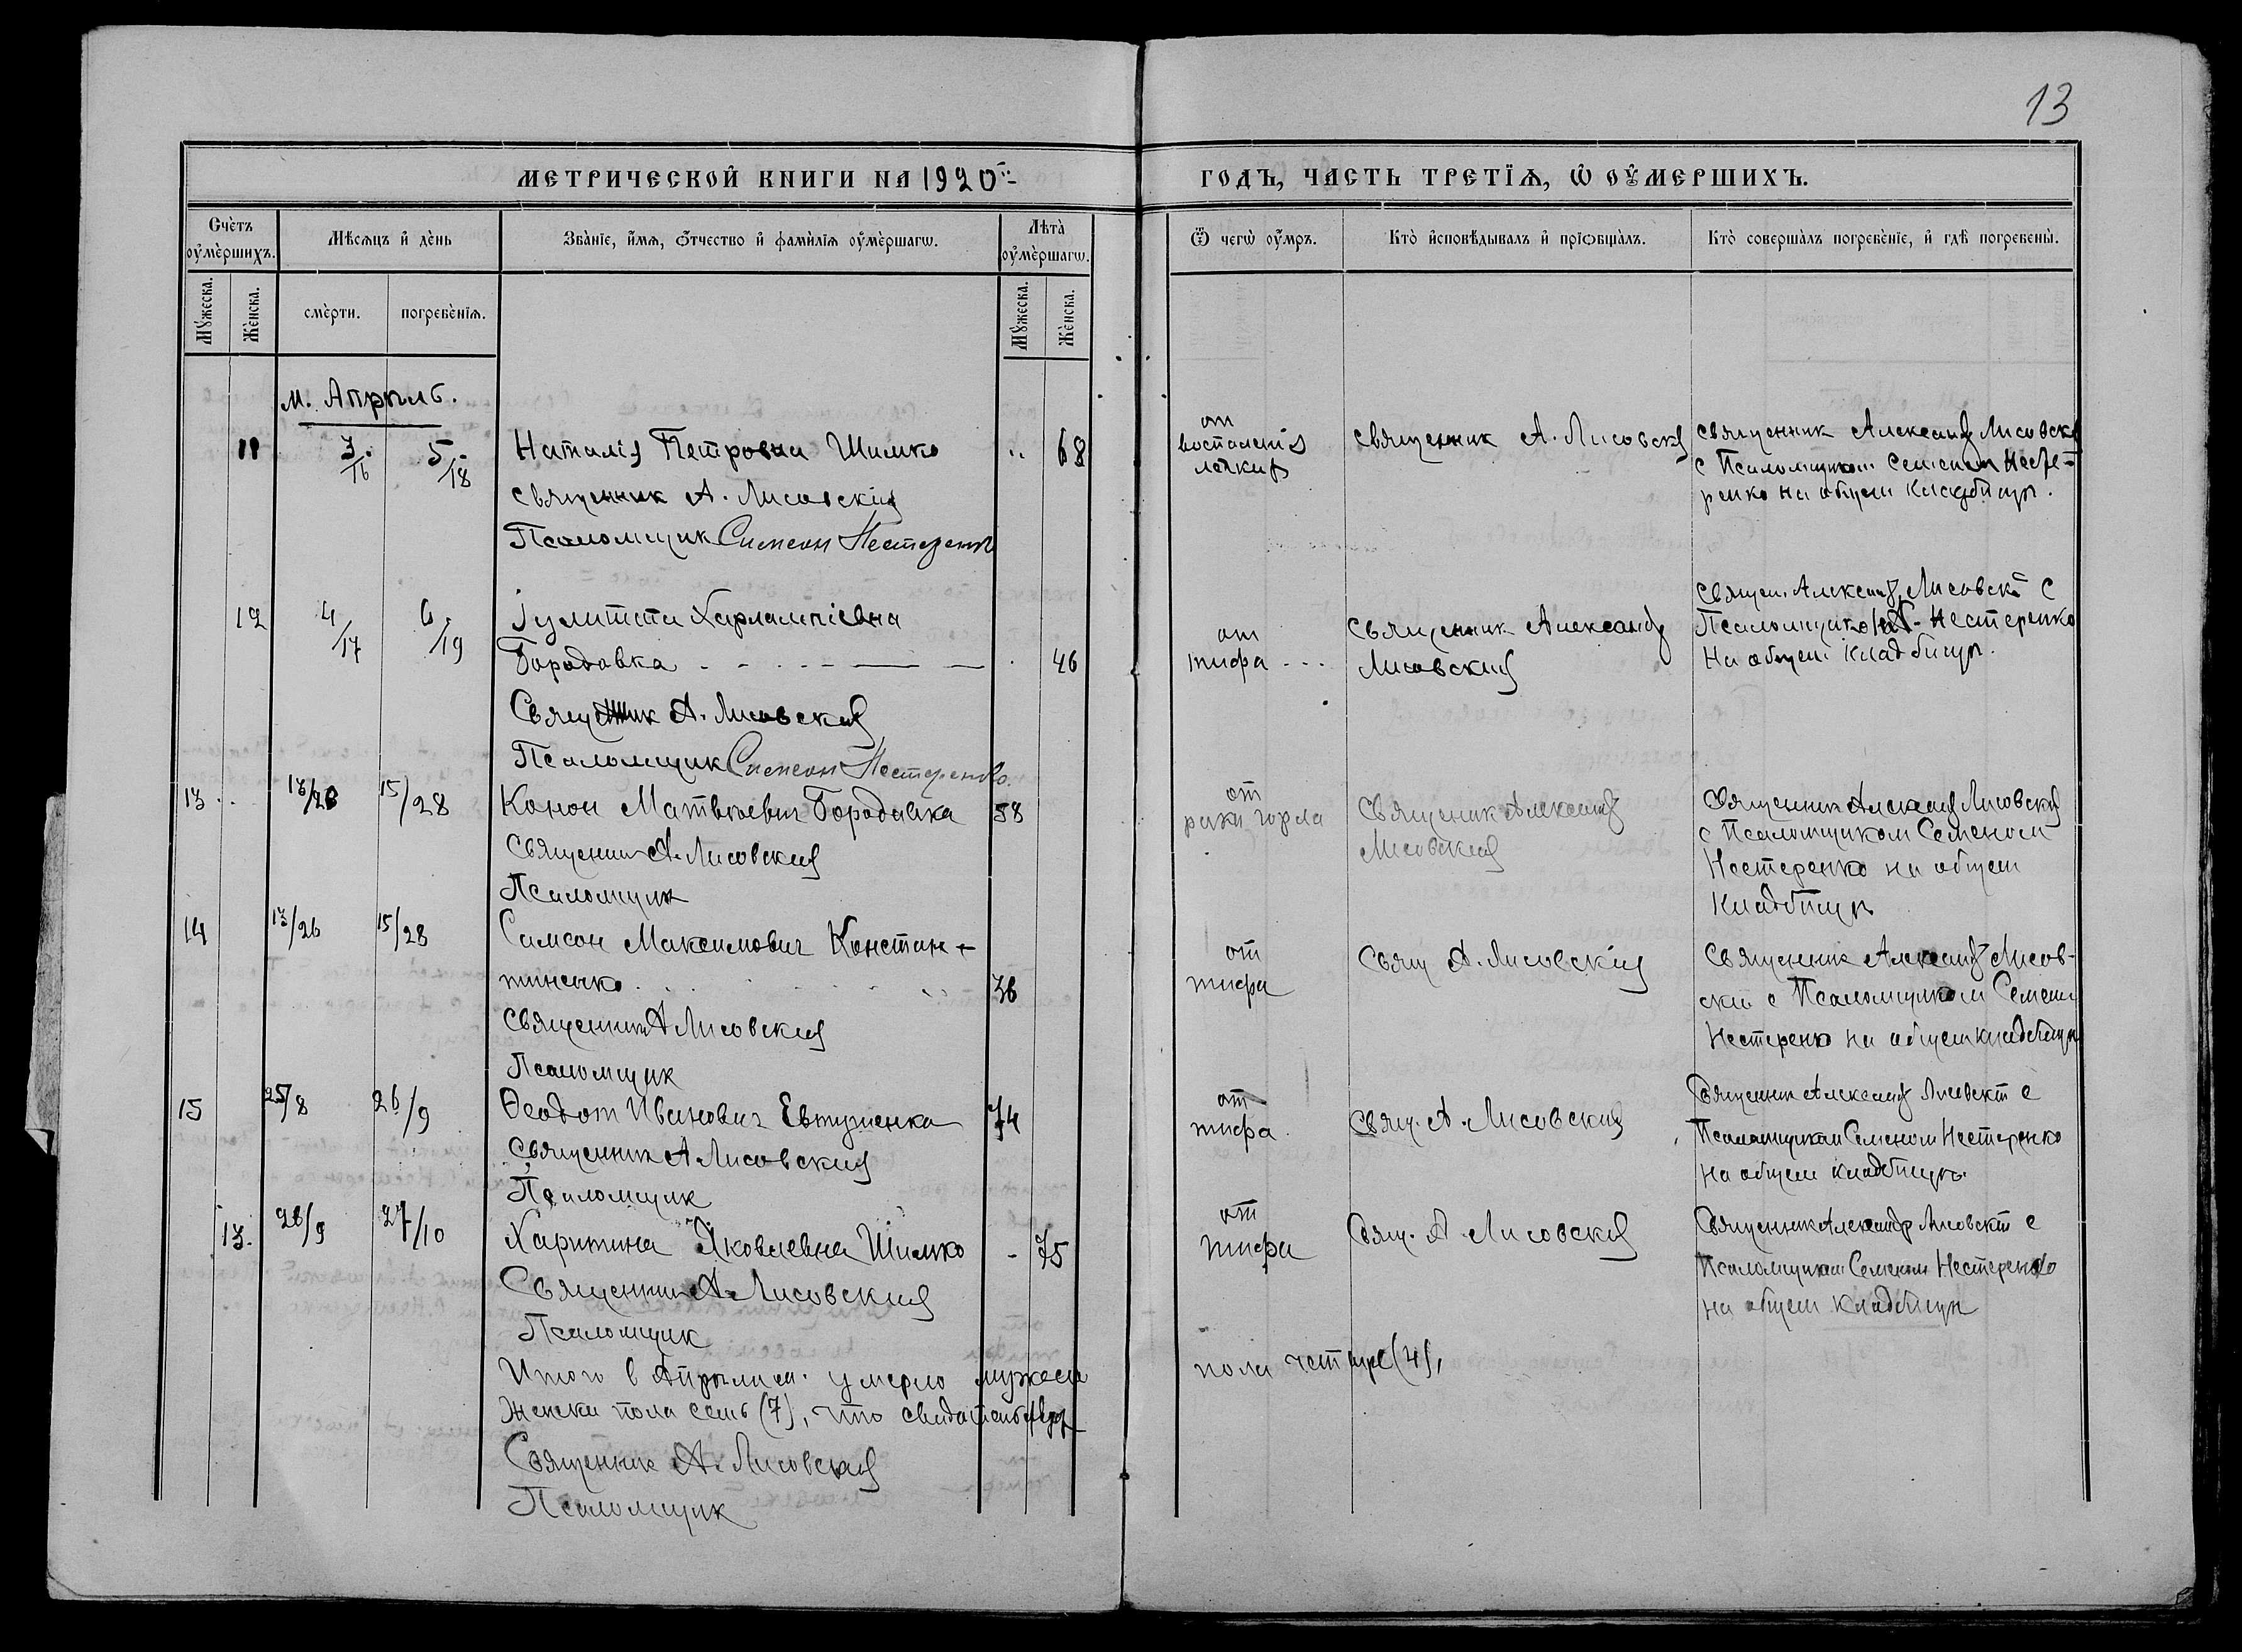 13
МЕТРИЧЕСКОЙ КНИГИ НА 1920й
ГОДЪ, ЧАСТЬ ТРЕТІѦ, Ѿ ОУМЕРШИХЪ.
Счетъ оумершихъ.
Мѣсѧцъ и день
Званіе, имѧ, отчество и фамиліѧ оумершагѡ.
Лѣта оумершагѡ.
Ѿ чегѡ оумръ.
Кто исповѣдывалъ и пріобщалъ.
Кто совершалъ погребеніе, и гдѣ погребены.
Мужеска.
Женска.
смерти.
погребеніѧ.
Мужеска.
Женска.
м. Апрѣль.
11 3/16 5/18 Наталія Петровна Шимко 68
Священник А. Лисовскій
Псаломщик Симеон Нестеренко
от
воспаленія
легких
Священник А. Лисовскій
Священник Александр Лисовскій
с Псаломщиком Семеном Несте-
ренко на общем кладбищѣ.
12 4/17 6/19 Іулитта Харлампіевна
Бородавка 46
Священник А. Лисовский
Псаломщик Симеон Нестеренко
от
тифа
Священник Александр
Лисовский
Священ. Александр Лисовскій с
Псаломщиком Нестеренко
На общем кладбищѣ.
13 15/28 Конон Матвѣевич Бородавка 58
Священник А. Лисовский
Псаломщик
от
раки горла
Священик Александр
Лисовский
Священник Александр Лисовский
с Псаломщиком Семеном
Нестеренко на общем
кладбищѣ
14 13/26 15/28 Самсон Максимович Констан-
тиненко 36
Священник А Лисовский
Псаломщик
от
тифа
Свящ А. Лисовскій
Священник Александр Лисов-
ский с Псаломщиком Семеном
Нестеренко на общем кладбищѣ
15 25/8 26/9 Ѳеодот Иванович Евтушенка 74
Священник А Лисовский
Псаломщик
от
тифа
Свящ. А. Лисовский
Священник Александр Лисовский с
Псаломщиком Семеном Нестеренко
на общем кладбищѣ
13. 26/9 27/10 Харитина Яковлевна Шимко - 75
Священник А. Лисовский
Псаломщик
от
тифа
Свящ. А. Лисовский
Священник Александр Лисовский с
Псаломщиком Семеном Нестеренко
на общем кладбищѣ
Итого в Апрѣле м. умерло мужеска пола четыре (4),
Женска пола семь (7), что свидѣтельствуем
Священник А. Лисовский
Псаломщик